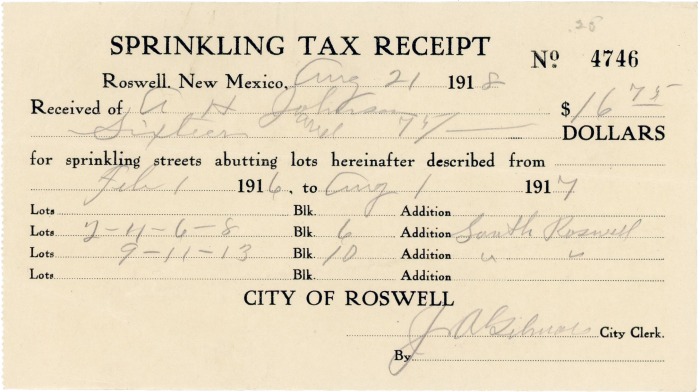 25
SPRINKLING TAX RECEIPT
No. 4746
Roswell, New Mexico, Aug 21 1918
Received of A H Johnson $16 75
Sixteen and 75/ DOLLARS
for sprinkling streets abutting lots hereinafter described from
Feb 1 1916, to Aug 1 1917
Lots Blk. Addition
Lots 2-4-6-8 Blk. 6 Addition South Roswell
Lots 9-11-13 Blk. 10 Addition " "
Lots Blk. Addition
CITY OF ROSWELL
J A Gilmore City Clerk.
By